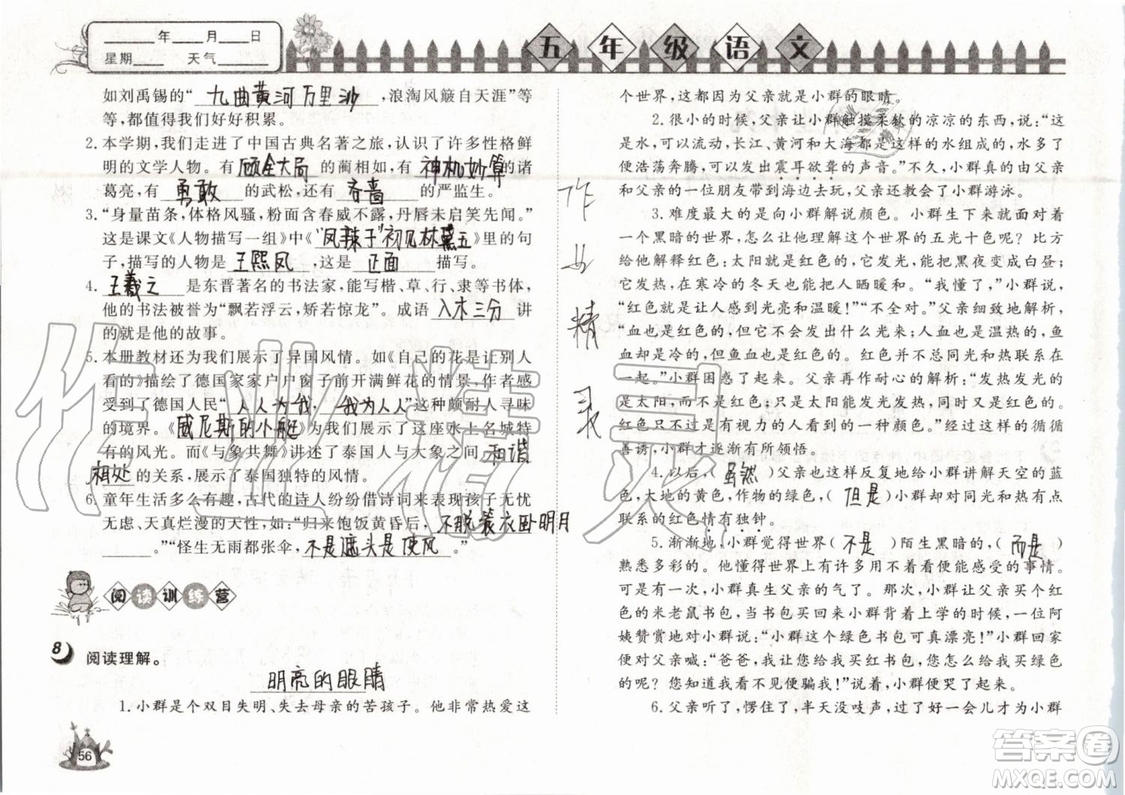 ____年____月____日
星期____ 天气____
五年级语文
如刘禹锡的“九曲黄河万里沙,浪淘风簸自天涯”等
等,都值得我们好好积累。
2.本学期,我们走进了中国古典名著之旅,认识了许多性格鲜
明的文学人物。有顾全大局的蔺相如,有神机妙算的诸
葛亮,有勇敢的武松,还有吝啬的严监生。
3.“身量苗条,体格风骚,粉面含春威不露,丹唇未启笑先闻。”
这是课文《人物描写一组》中《“凤辣子”初见林黛玉》里的句
子,描写的人物是王熙凤,这是正面描写。
4.王羲之是东晋著名的书法家,能写楷、草、行、隶等书体,
他的书法被誉为“飘若浮云,矫若惊龙”。成语入木三分讲
的就是他的故事。
5.本册教材还为我们展示了异国风情。如《自己的花是让别人
看的》描绘了德国家家户户窗子前开满鲜花的情景,作者还
感受到了德国人民“人人为我,我为人人”这种颇耐人寻味
的境界。《威尼斯的小艇》展示了这座水上名城特
有的风光。而《与象共舞》讲述了泰国人与大象之间和谐
相处的关系,展示了泰国独特的风情。
6.童年生活多么有趣,古代的诗人纷纷借诗词来表现孩子无忧
无虑、天真烂漫的天性,如:归来饱饭黄昏后,不脱蓑衣卧明月
____。”“怪生无雨都张伞,不是遮头是使风。”
阅读训练营
8 阅读理解。
明亮的眼睛
1.小群是个双目失明、失去母亲的苦孩子。他非常热爱这
56
个世界,这都是因为父亲是小群的眼睛。
2.很小的时候,父亲让小群触摸柔软的凉凉的东西,说:“这
是水,水可以流动,长江、黄河和大海都是这样的水组成,水多了
便浩荡奔腾,可以发出震耳欲聋的声音。”不久,小群由父亲和
父亲的一位朋友带到海边去,父亲还教会了小群游泳。
3.难度最大的是向小群解说颜色。小群生下来就面对着
一个黑暗的世界,怎么让他理解世界的五光十色呢?比方
给他解释红色:太阳就是红色的,它能把夜晚变成白昼;
它是火,在寒冷的冬天也能把人烤暖和。小群立即说:
“红色就是光亮和温暖!”“不全对。”父亲细致地解析,
“血也是红色的,但血不会发出什么光来;人血是温热的,鱼
血却是冷的,但也是红色的。红色同光和热既有联系
又有区别。”小群困惑了起来。父亲再作耐心的解析:“发热发光的
是太阳,而红色只是颜色,太阳能发光发热,同时又是红色的,
但是红色只是有视力的人看到的一种颜色。”父亲这样的循循
诱导、不厌其烦,小群才逐渐有所领悟。
4.以后,(虽然)父亲也这样反复地给小群讲解天空的蓝
色,大地的黄色,作物的绿色,(但是)小群却对同光和热有
联系的红色情有独钟。
5.渐渐地,小群觉得世界(不是)陌生黑暗的,(而是)
熟悉多彩的。小群在家里作出了许多用不着眼睛便能感受的事情。
但有一次,小群真生父亲的气了。父亲给小群买了一个红色
的米老鼠书包,小群背着这书包到幼儿园上学的时候,阿
姨赞赏地对小群说:“小群这个绿色书包可真漂亮!”小群回家
便对父亲喊:“爸爸,我让您买红书包,您怎么买了绿书包
给我,您骗人,您骗人!”说着,小群呜呜地哭了起来。
6.父亲听了,愣住了,半天没吱声,好一会儿才为小群
作业精灵
作业精灵
答案圈
MXQE.COM